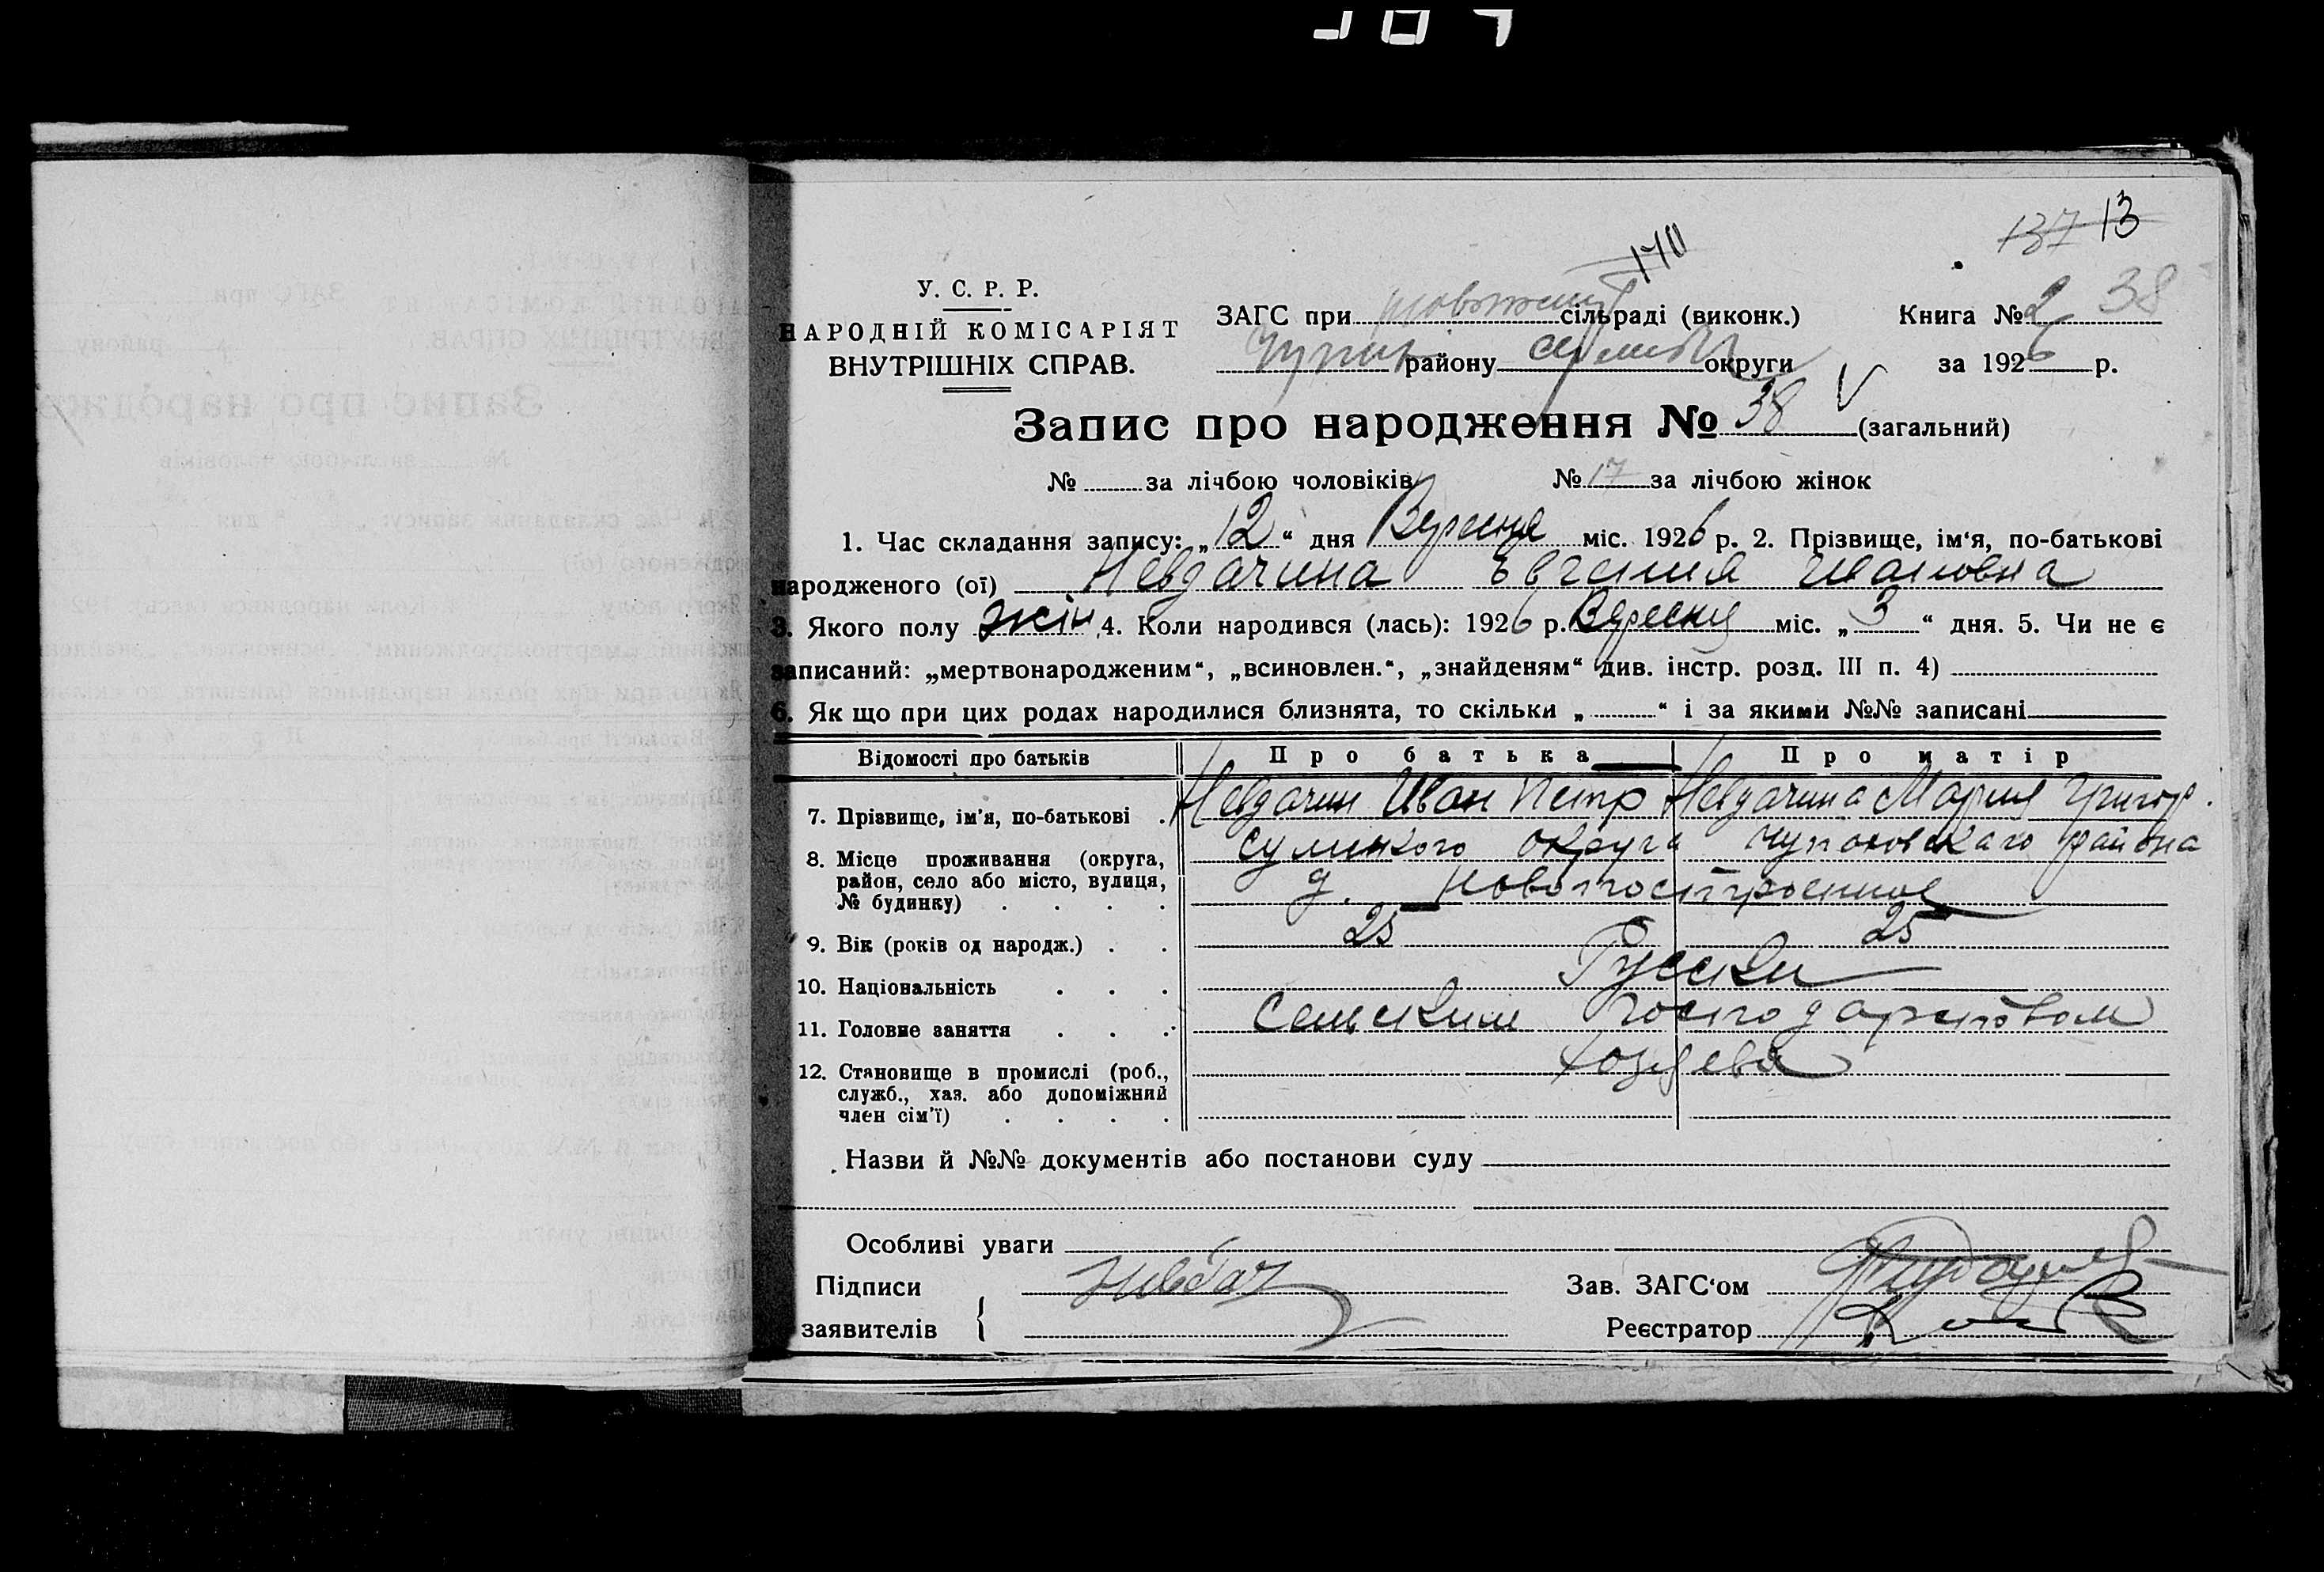 137 13
170
У. С. Р. Р.
НАРОДНІЙ КОМІСАРІЯТ
ВНУТРІШНІХ СПРАВ.
ЗАГС при сільраді (виконк.)
району округи
Книга № 2 38
за 1926 р.
Запис про народження № 38 (загальний)
№ за лічбою чоловіків № 17 за лічбою жінок
1. Час складання запису: „12“ дня Вересня міс. 1926 р. 2. Прізвище, ім‘я, по-батькові
народженого (ої) Невдачина Евгения Ивановна
3. Якого полу жін 4. Коли народився (лась): 1926 р. Вересня міс. „3“ дня. 5. Чи не є
записаний: „мертвонародженим“, „всиновлен.“, „знайденям“ див. інстр. розд. III п. 4)
6. Як що при цих родах народилися близнята, то скільки „ “ і за якими №№ записані
Відомості про батьків Про батька Про матір
7. Прізвище, ім'я, по-батькові . Невдачин Иван Петр Невдачина Мария Григор.
8. Місце проживання (округа, район, село або місто, вулиця, № будинку) . . . . Сумского округа Чупаховскаго района
д. Новопостроенное
9. Вік (років од народж.) . . 25 25
10. Національність . . . Русски
11. Головне заняття . . . Сельским господарством
12. Становище в промислі (роб., служб., хаз. або допоміжний член сім'ї) . . . . Хозяева
Назви й №№ документів або постанови суду
Особливі уваги
Підписи
заявителів
Зав. ЗАГС‘ом
Реєстратор